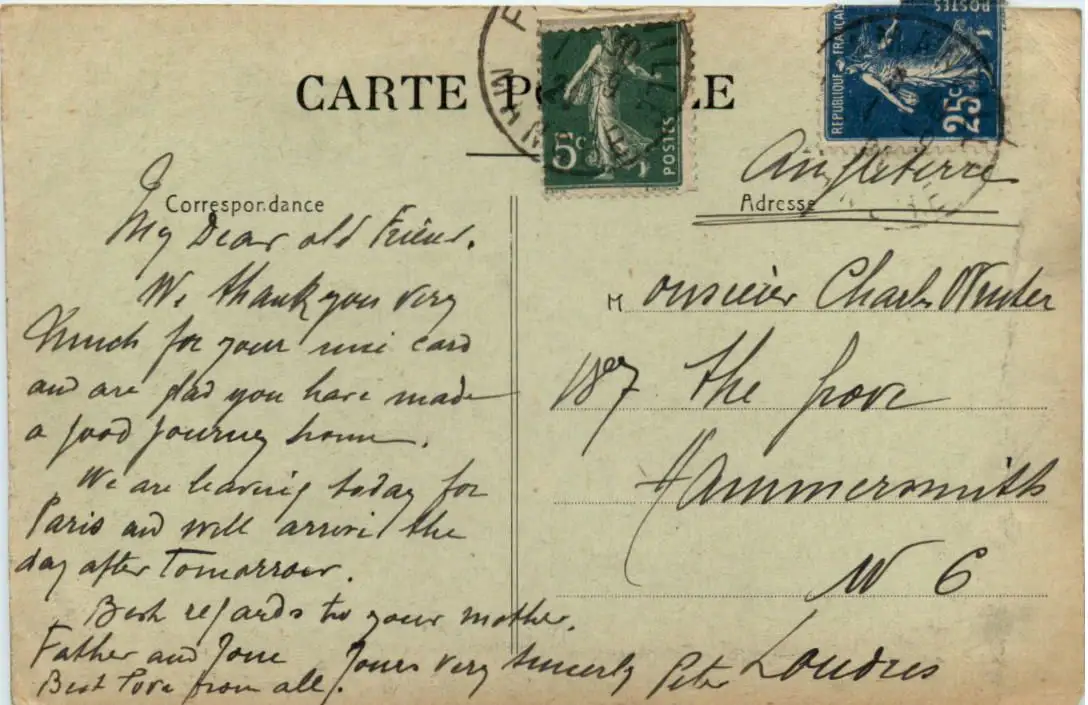 CARTE P LE
5c
POSTES
REPUBLIQUE FRANÇAISE
25c
POSTES
Correspondance
My Dear old Friend.
We thank you very
Much for your nice card
and are glad you have made
a good journey home.
We are leaving today for
Paris and will arrive the
day after Tomorrow.
Best regards to your mother.
Father and
Best Love from all.
Yours very sincerely Peter
Angleterre
Adresse
Monsieur Charles Winter
187 The Grove
Hammersmith
W 6
Londres